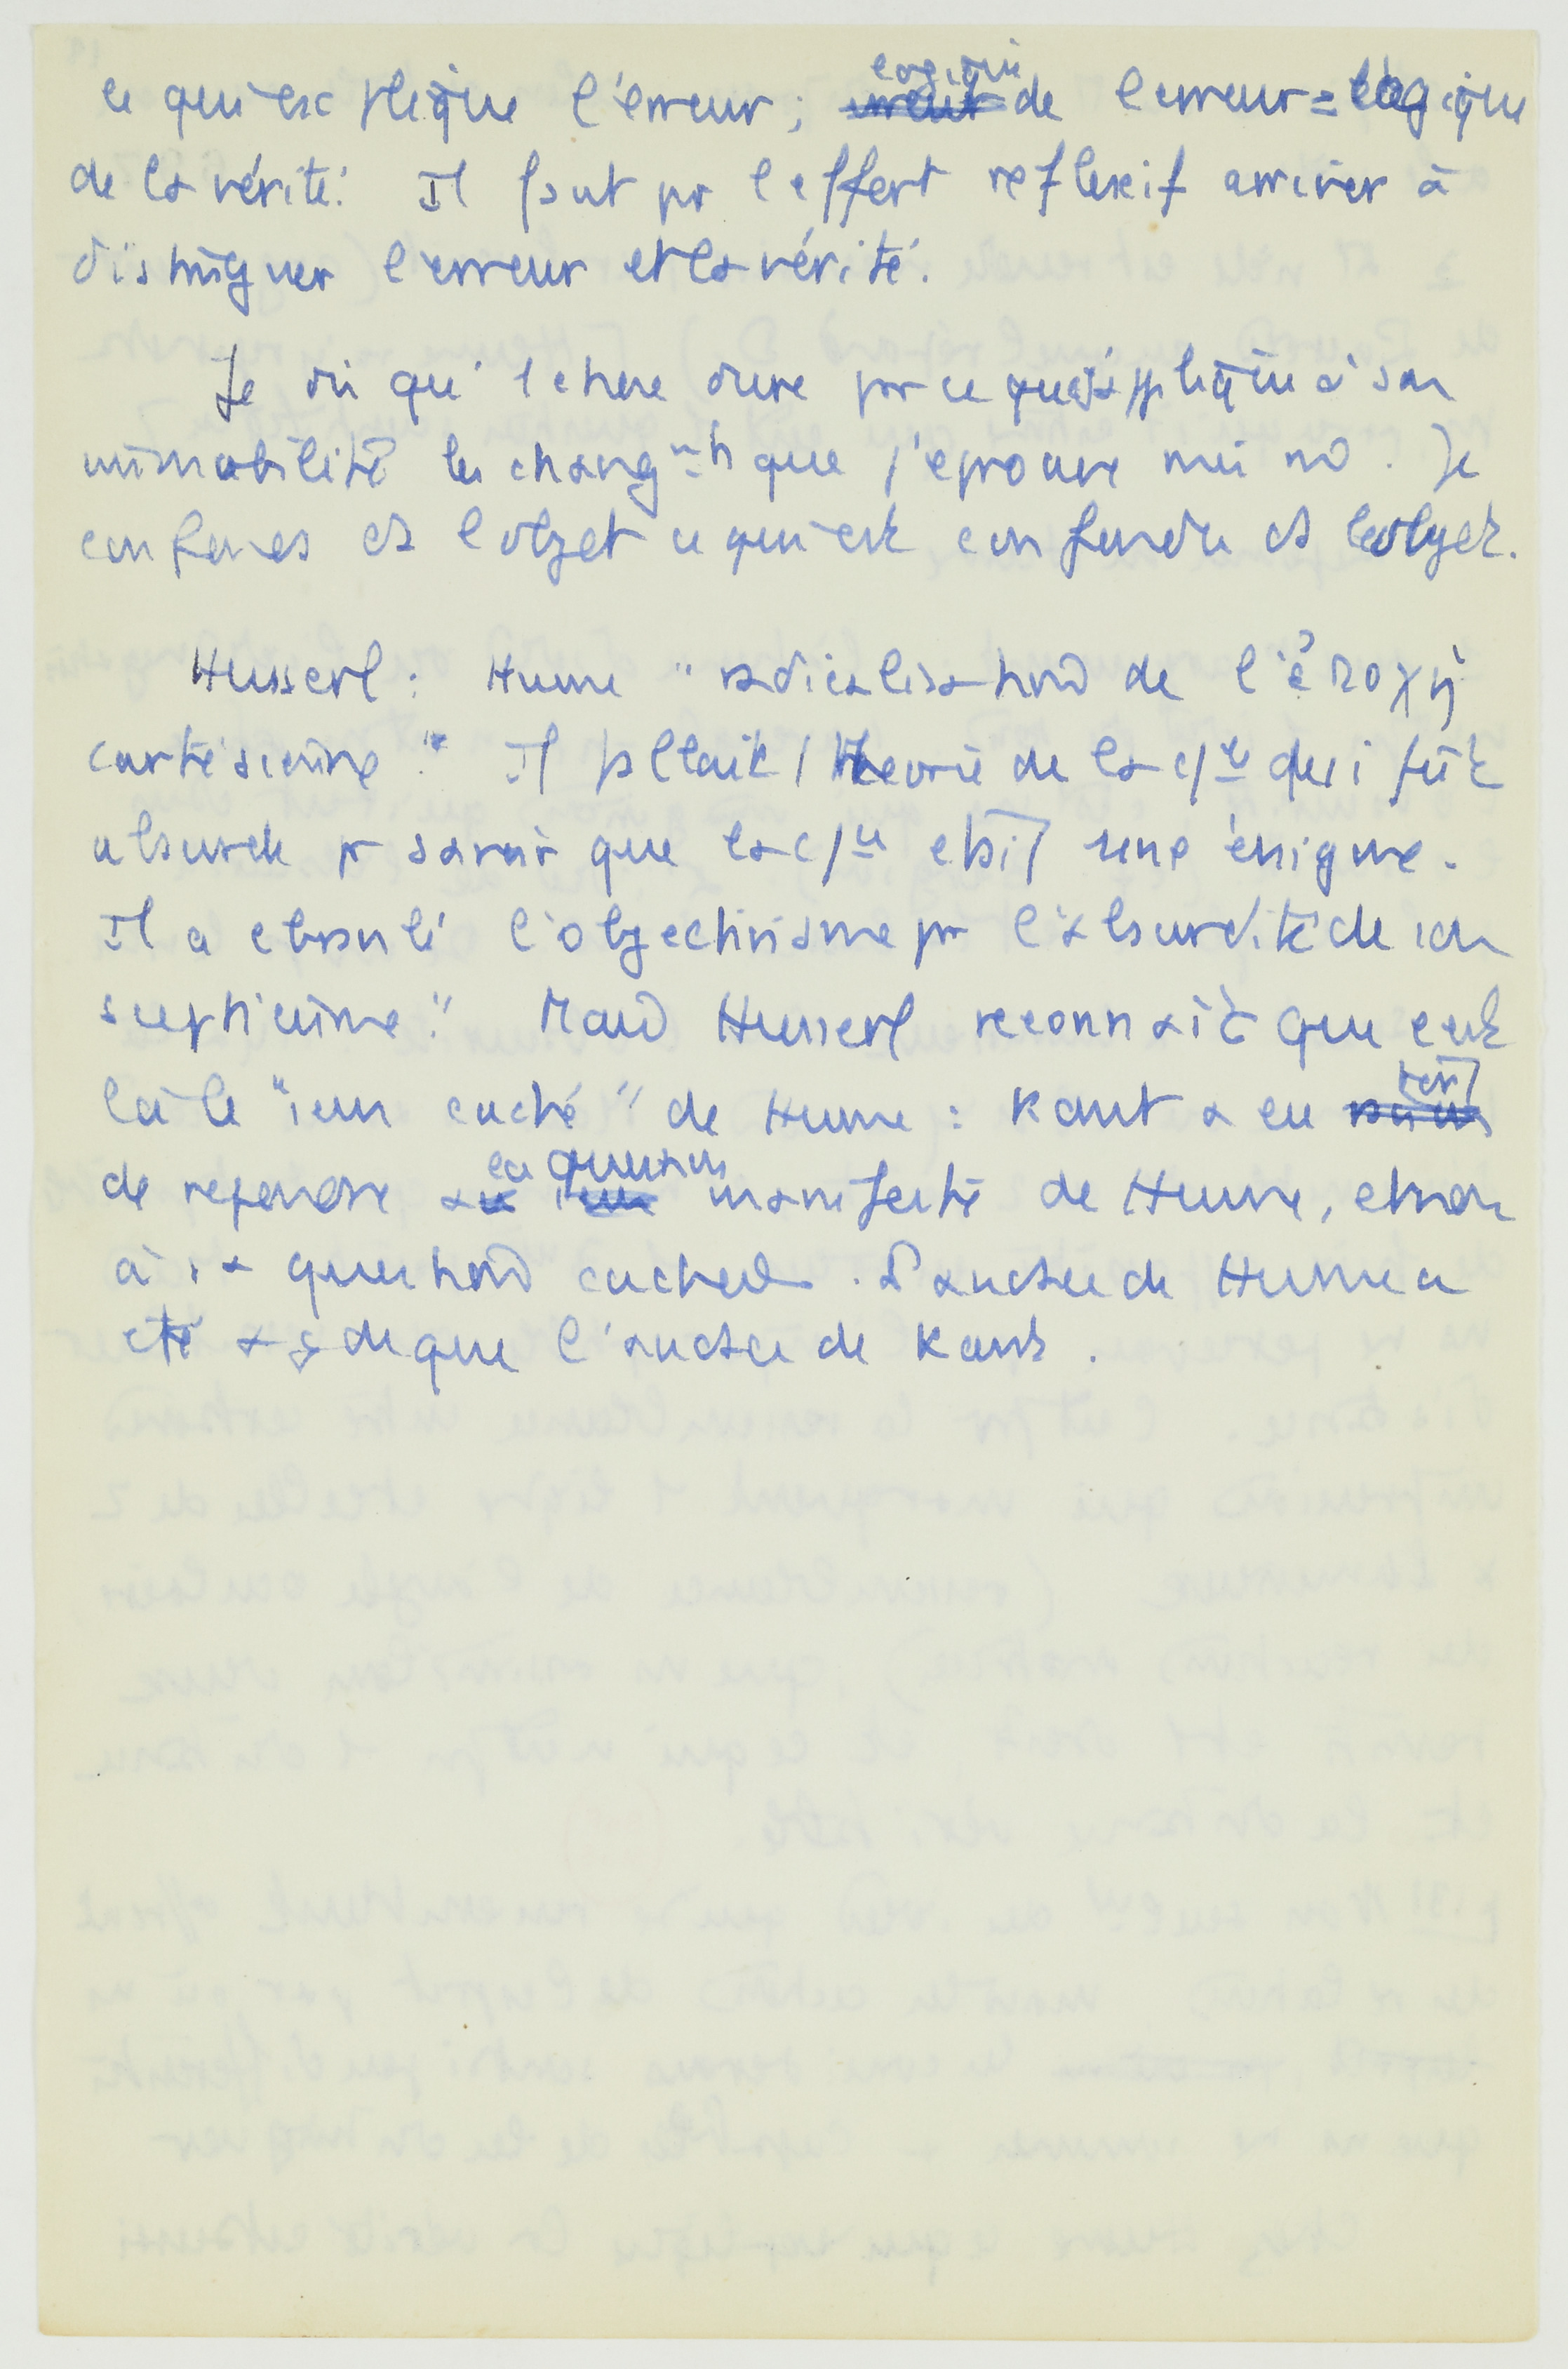 ce qui explique l'erreur ; logique de l'erreur = logique
de la vérité. Il faut pr l'effort reflexif arriver à
distinguer l'erreur et la vérité.
Je dis qu' 1 chose dure parce que j'applique à son
immobilité les changnts que j'éprouve moi m̂. Je
confonds ds l'objet ce qui est confondu ds l'objet.
Husserl : Hume " radicalisation de l'ἐποχή
cartésienne " Il fallait 1 théorie de la c/ce qui fût
absurde pr savoir que la c/ce était une énigme.
Il a ébranlé l'objectivisme pr l'absurdité de son
scepticisme." Mais Husserl reconnaît que c'est
là le "sens caché" de Hume : Kant a eu tort
de répondre au sens manifeste de Hume, et non
à sa question cachée. L'audace de Hume a
été + gde que l'audace de Kant.